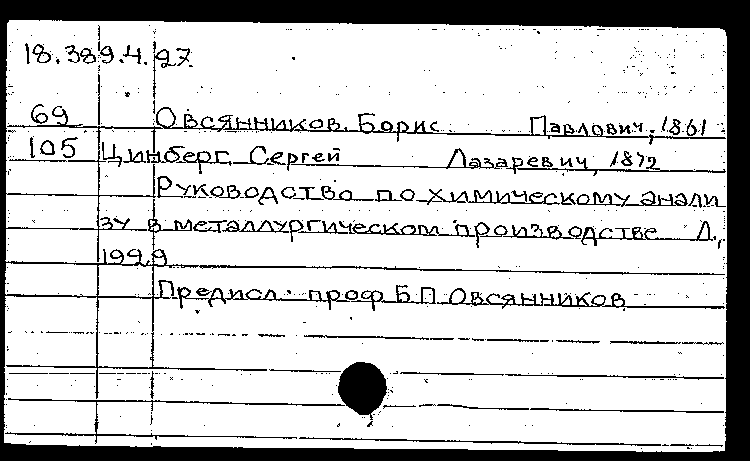 18.389.4.97
69 Овсянников, Борис Павлович, 1861
105 Цинберг, Сергей Лазаревич, 1872
Руководство по химическому анали
зу в металлургическом производстве Л.,
1929
Предисл. проф Б.П. Овсянников